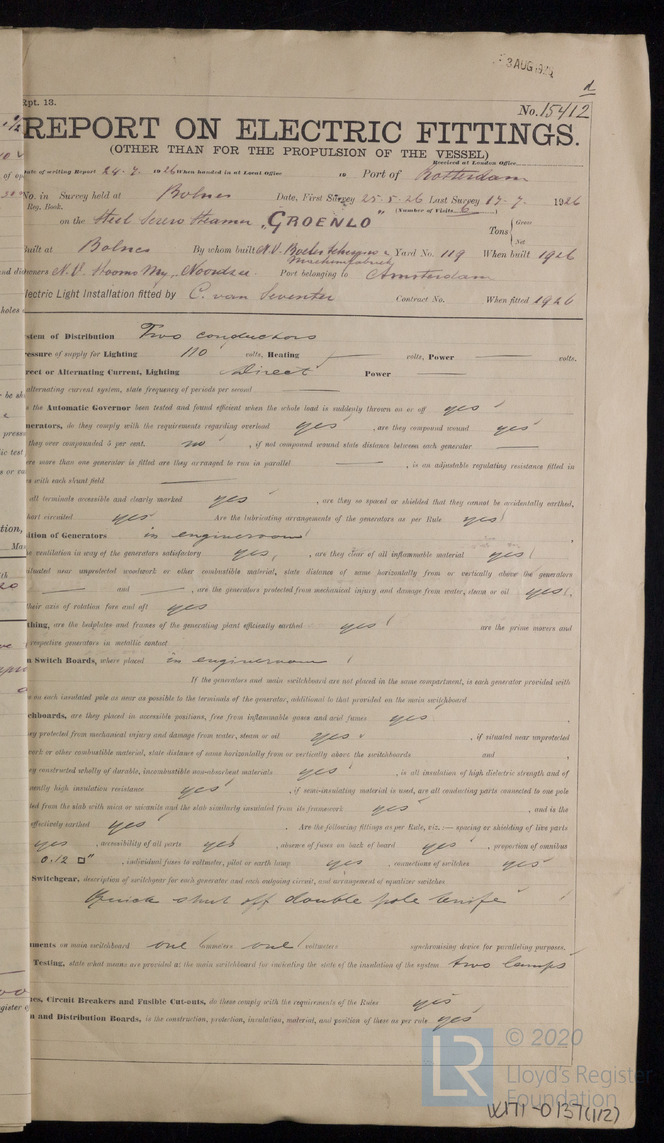 3 AUG 192
d
Rpt. 13. No. 15412
REPORT ON ELECTRIC FITTINGS.
(OTHER THAN FOR THE PROPULSION OF THE VESSEL)
Received at London Office
Date of writing Report 24.7. 1926 When handed in at Local Office 19 Port of Rotterdam
No. in Survey held at Bolnes Date, First Survey 25-5-26 Last Survey 17.7. 1926
Reg. Book. (Number of Visits 6)
on the Steel Screw Steamer "GROENLO" Tons { Gross Net
Built at Bolnes By whom built N.V. Boele's Scheepsw. & Machinefabriek Yard No. 119 When built 1926
owners N.V. Stoomv. My. Noordzee Port belonging to Amsterdam
lectric Light Installation fitted by C. van Seventer Contract No. When fitted 1926
stem of Distribution Two conductors
ressure of supply for Lighting 110 volts, Heating — volts, Power — volts.
rect or Alternating Current, Lighting Direct Power —
alternating current system, state frequency of periods per second —
s the Automatic Governor been tested and found efficient when the whole load is suddenly thrown on or off yes
nerators, do they comply with the requirements regarding overload yes , are they compound wound yes
they over compounded 5 per cent. no , if not compound wound state distance between each generator —
re more than one generator is fitted are they arranged to run in parallel — , is an adjustable regulating resistance fitted in
s with each shunt field —
all terminals accessible and clearly marked yes , are they so spaced or shielded that they cannot be accidentally earthed,
hort circuited yes Are the lubricating arrangements of the generators as per Rule yes
ition of Generators in engineroom
he ventilation in way of the generators satisfactory yes, , are they clear of all inflammable material yes
situated near unprotected woodwork or other combustible material, state distance of same horizontally from or vertically above the generators
— and — , are the generators protected from mechanical injury and damage from water, steam or oil yes ,
their axis of rotation fore and aft yes
thing, are the bedplates and frames of the generating plant efficiently earthed yes are the prime movers and
respective generators in metallic contact
n Switch Boards, where placed in engineroom
If the generators and main switchboard are not placed in the same compartment, is each generator provided with
on each insulated pole as near as possible to the terminals of the generator, additional to that provided on the main switchboard
chboards, are they placed in accessible positions, free from inflammable gases and acid fumes yes
ey protected from mechanical injury and damage from water, steam or oil yes , if situated near unprotected
work or other combustible material, state distance of same horizontally from or vertically above the switchboards and ,
ey constructed wholly of durable, incombustible non-absorbent materials yes , is all insulation of high dielectric strength and of
nently high insulation resistance yes , if semi-insulating material is used, are all conducting parts connected to one pole
ted from the slab with mica or micanite and the slab similarly insulated from its framework yes , and is the
effectively earthed yes . Are the following fittings as per Rule, viz.:— spacing or shielding of live parts
yes , accessibility of all parts yes , absence of fuses on back of board yes , proportion of omnibus
0.12 □" , individual fuses to voltmeter, pilot or earth lamp yes , connections of switches yes
Switchgear, description of switchgear for each generator and each outgoing circuit, and arrangement of equalizer switches
Quick shut off double pole knife
uments on main switchboard one ammeters one voltmeters synchronising device for paralleling purposes.
Testing, state what means are provided at the main switchboard for indicating the state of the insulation of the system two lamps
hes, Circuit Breakers and Fusible Cut-outs, do these comply with the requirements of the Rules yes
n and Distribution Boards, is the construction, protection, insulation, material, and position of these as per rule yes
LR
© 2020
Lloyd's Register
Foundation
W171-0137(1/2)